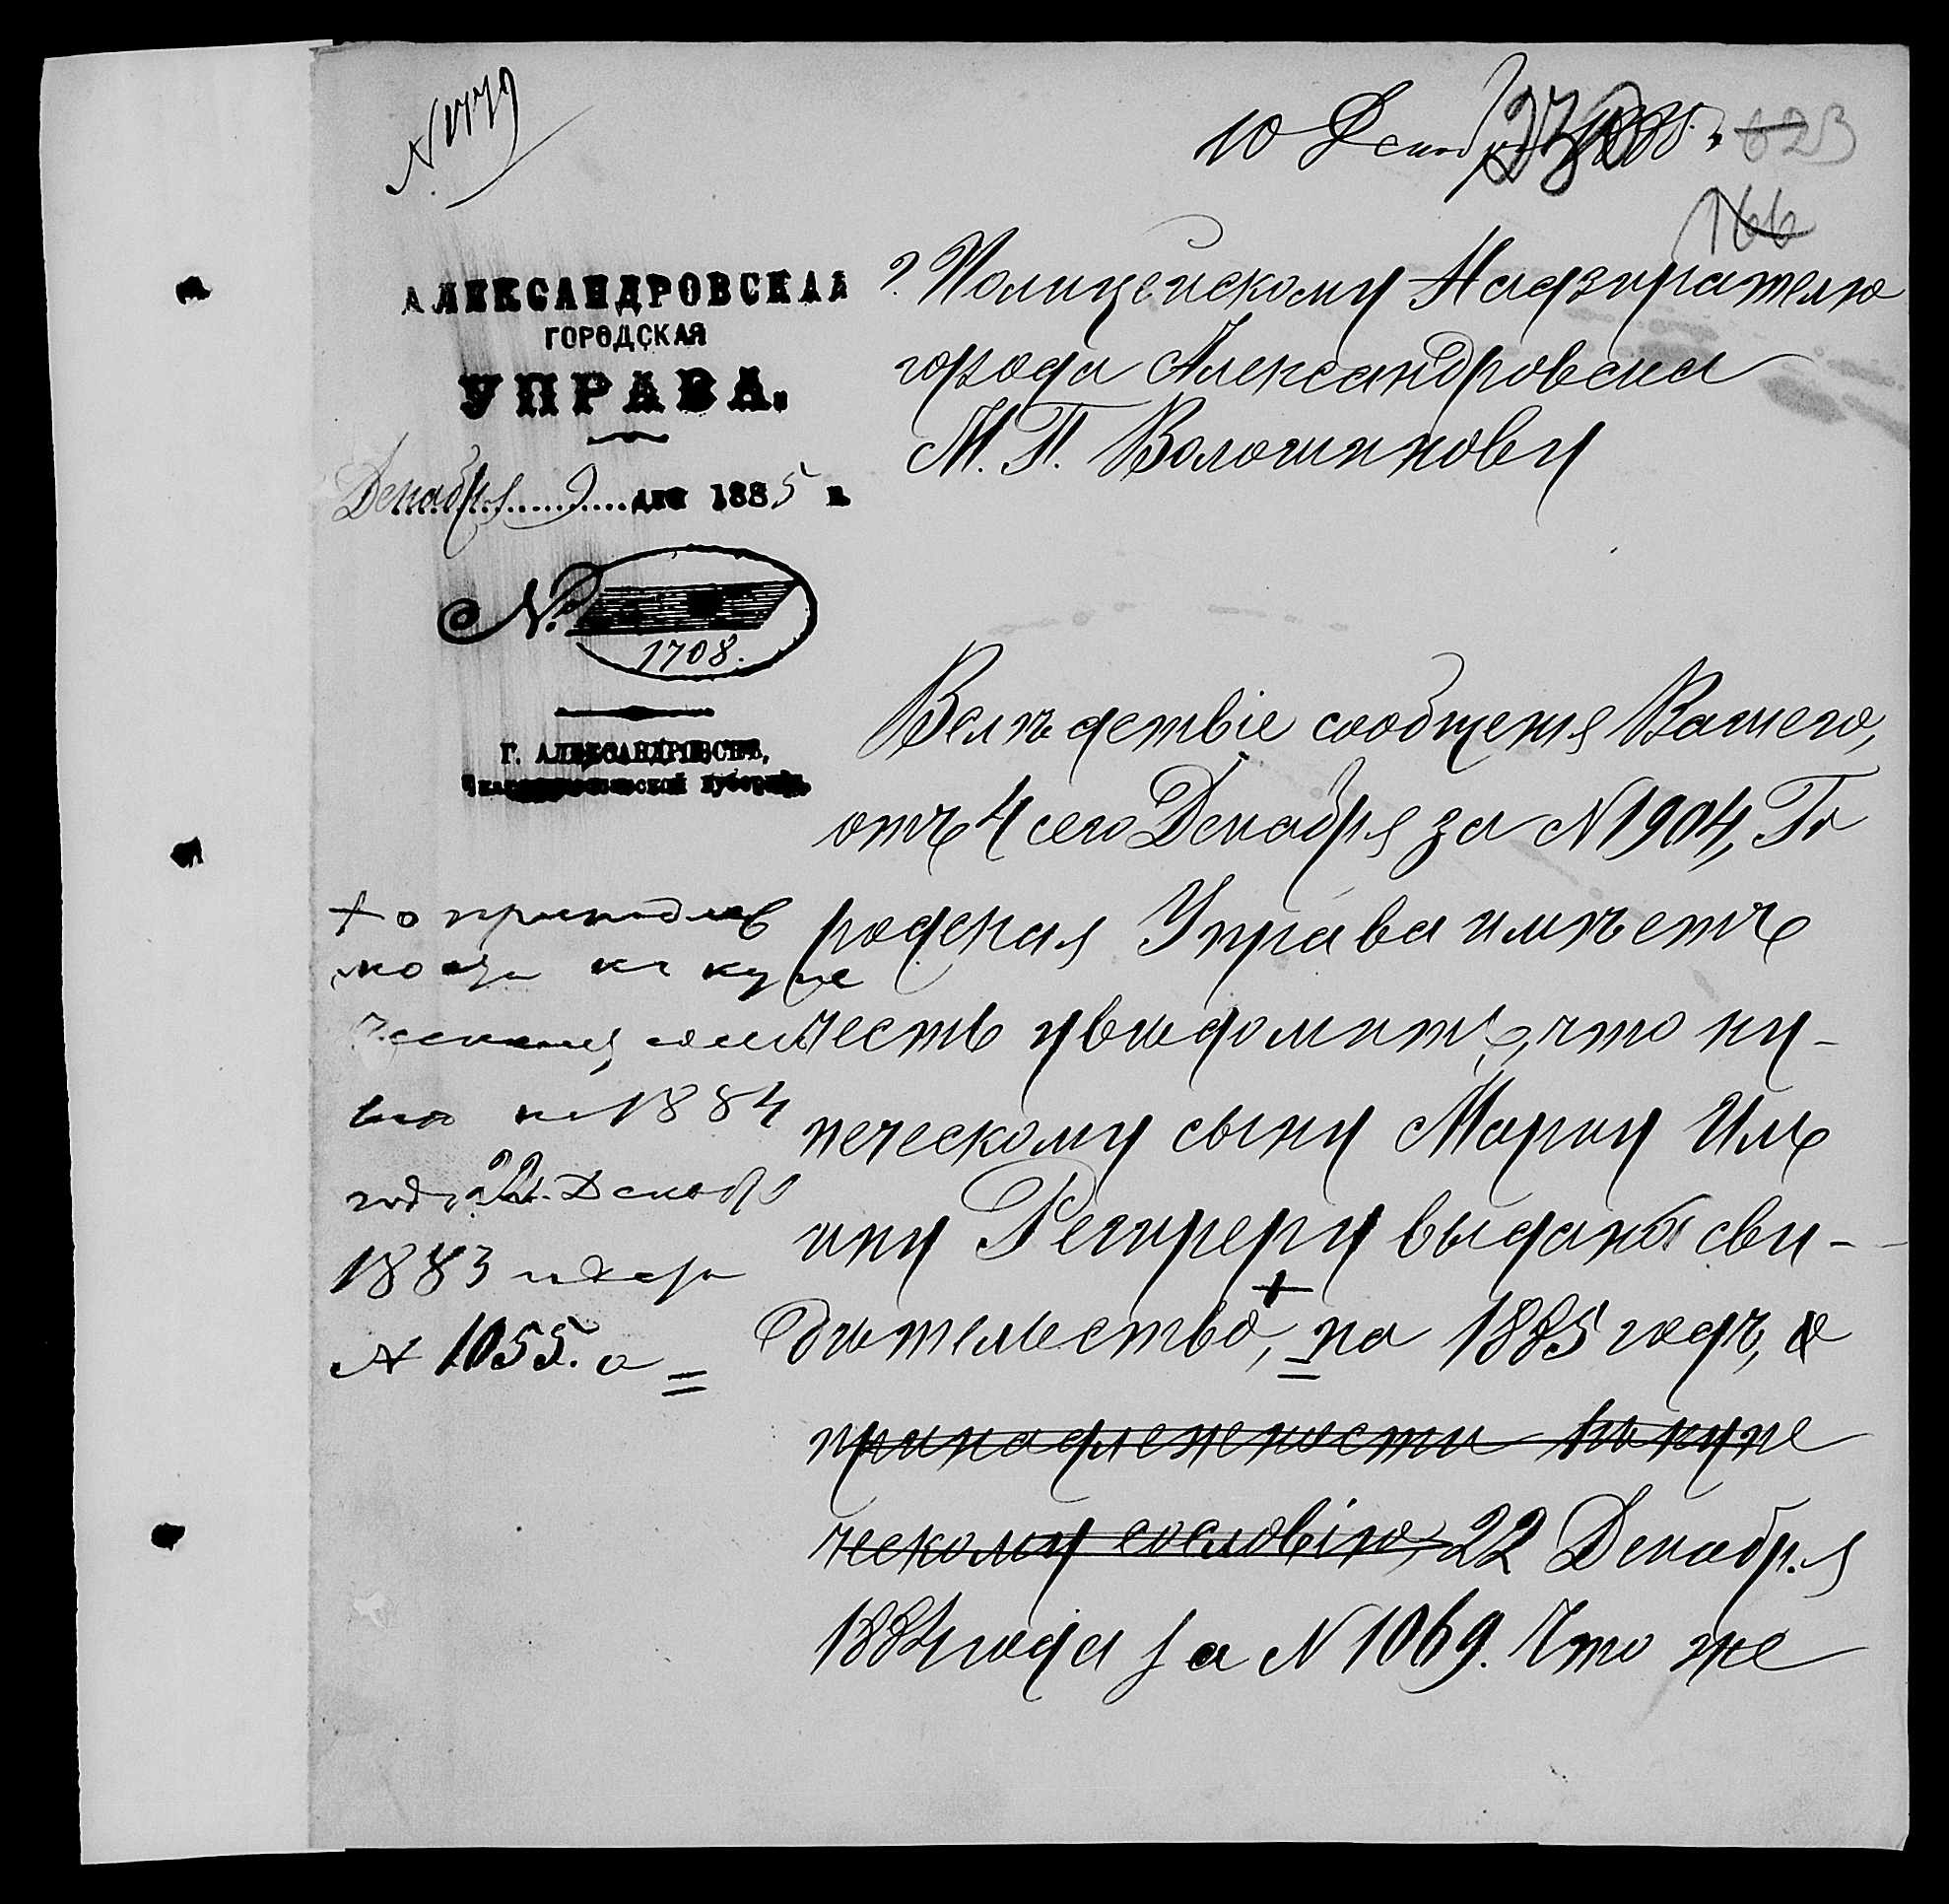 10 Декабря 1885.
623
166
АЛЕКСАНДРОВСКАЯ
ГОРОДСКАЯ
УПРАВА.
Декабря 9 дня 1885 г.
№
1708.
Г. АЛЕКСАНДРОВСКЪ,
губерніи
г. Полицейскому Надзирателю
города Александровска
М. П. Волошинову
Вслѣдствіе сообщенія Вашего,
отъ 4 сего Декабря за N 1904, Го
родская Управа имѣетъ
честь увѣдомить, что ку-
печескому сыну Марку Иль
ину выданы сви-
дѣтельство, на 1885 годъ, о
принадлежности къ купе
ческому сословію, 22 Декабря
1884 года за N 1069. Что же
+ о принадлеж
ности къ купе
ческому
на 1884
годъ 22 Декабря
1883 года
N 1055. а =